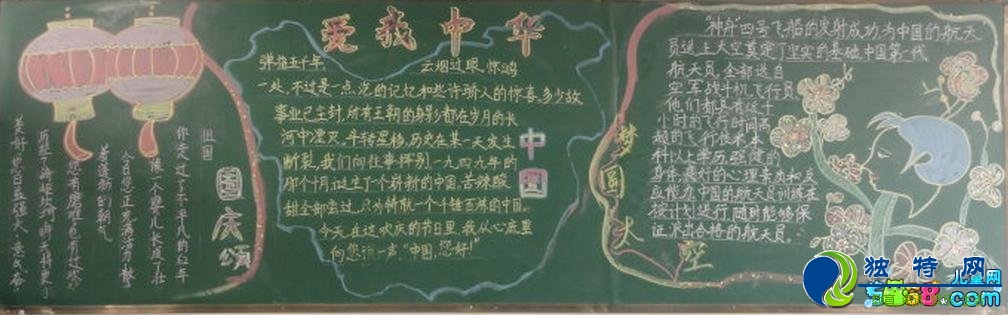 爱我中华
弹指五千年 云烟过眼,惊鸿
一处,不过是一点光的记忆和些许骄人的惊喜,多少故
事业已尘封,所有王朝的身影都在岁月的长
河中湮灭,斗转星移,历史在某一天发生
断裂,我们向往事挥别,一九四九年的
那个十月,诞生了个崭新的中国。苦辣酸
甜全部尝过,只为铸就一个千锤百炼的中国。
今天,在这欢庆的节日里,我从心底里
向您讲一声:"中国,您好!"
中国
国庆颂
祖国
你走过了不平凡的62年
像一个婴儿长成了壮
今日您正充满活力
着蓬新的朝气
您有磨难也有过欢
历
美好
"神舟"四号飞船的发射成功,为中国的航天
员送上太空奠定了坚实的基础,中国第一代
航天员,全部选自
空军战斗机飞行员
他们都具有近千
小时的飞行时间高
超的飞行技术,本
科以上学历,强健的
身体,良好的心理素质和反
应能力,中国的航天员训练在
按计划进行,随时能够保
证派出合格的航天员。
梦圆太空
独特网
儿童网
.com